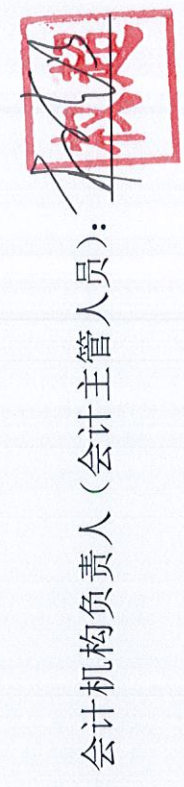 会计机构负责人（会计主管人员）：